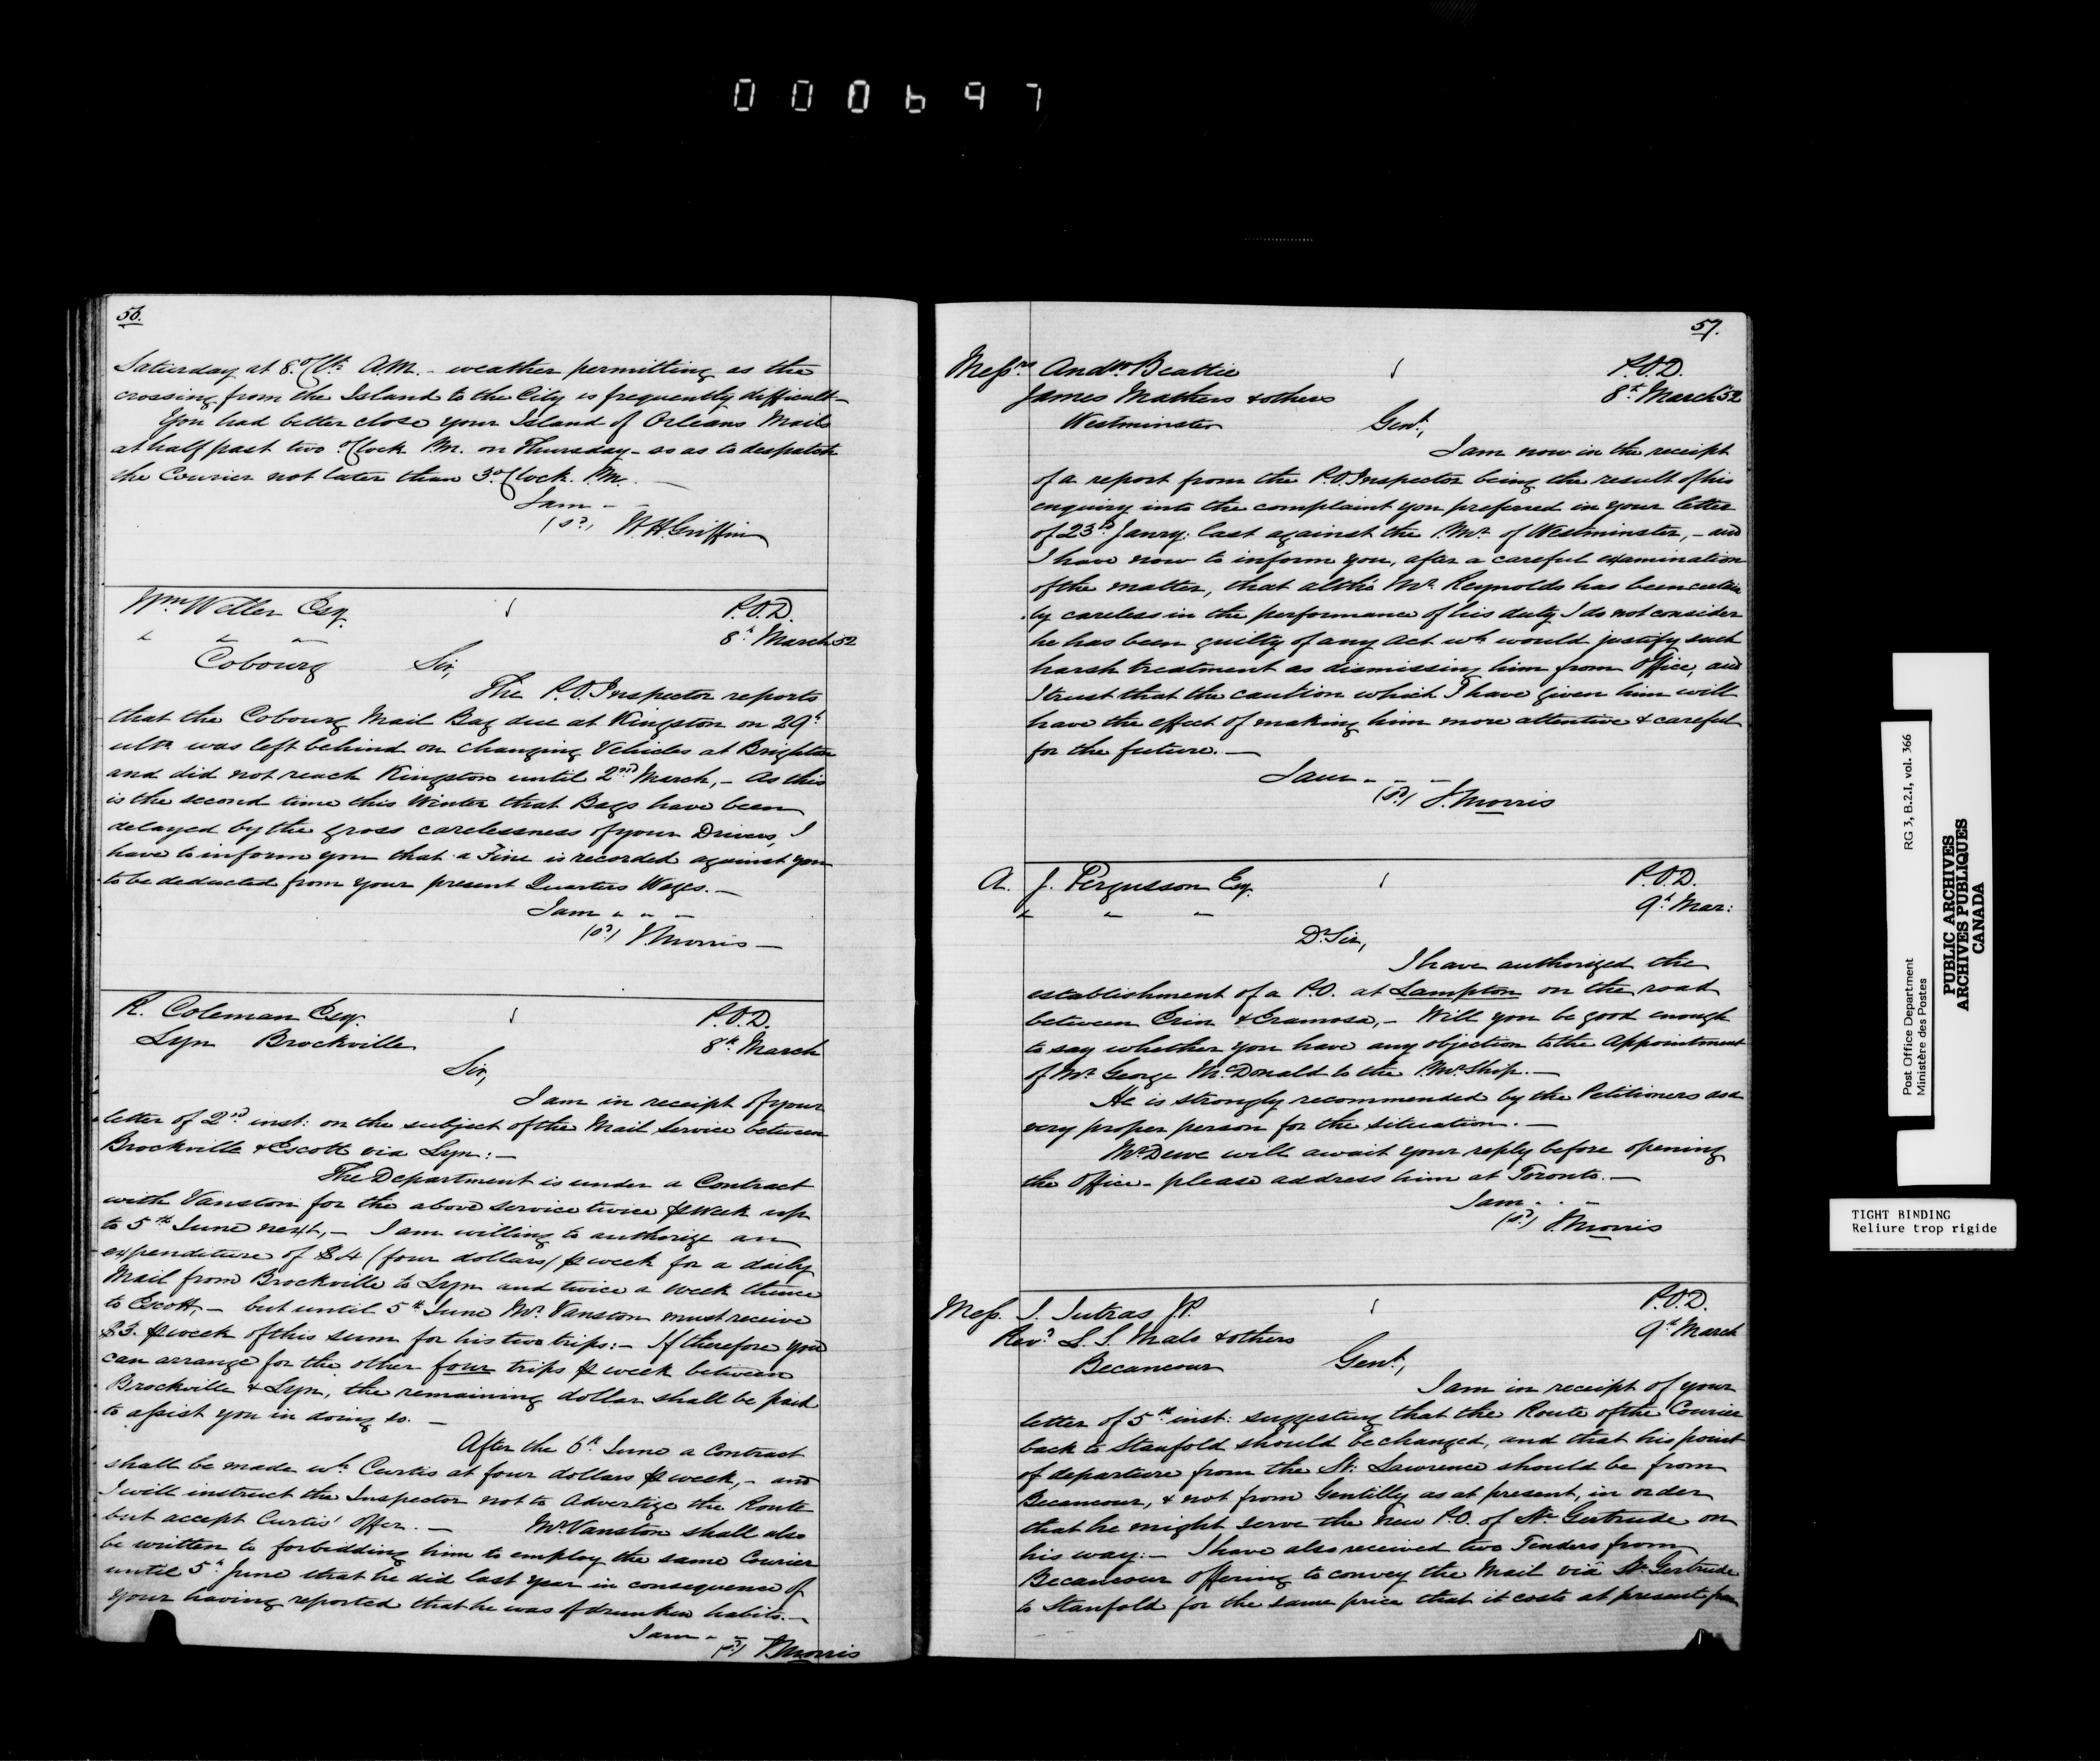 000697
56.
Saturday at 8 o'Clk A.M. - weather permitting as the
crossing from the Island to the City is frequently difficult -
You had better close your Island of Orleans Mails
at half past two o'Clock P.M. on Thursday - so as to despatch
the Courier not later than 3 o'Clock P.M. -
I am -
(sd) W. H. Griffin
Wm Weller Esq.
P.O.D.
8th March 52
Cobourg
Sir,
The P.O. Inspector reports
that the Cobourg Mail Bag due at Kingston on 29th
ulto was left behind on changing Vehicles at Brighton
and did not reach Kingston until 2nd March, - As this
is the second time this Winter that Bags have been
delayed by the gross carelessness of your Drivers, I
have to inform you that a Fine is recorded against you
to be deducted from your present Quarters Wages. -
I am " " "
(sd) J. Morris -
R. Coleman Esq.
P.O.D.
Lyn Brockville
8th March
Sir,
I am in receipt of your
letter of 2nd inst: on the subject of the Mail Service between
Brockville & Escott via Lyn: -
The Department is under a Contract
with Vanston for the above service twice ⅌ week up
to 5th June next, - I am willing to authorize an
expenditure of $4 (four dollars) ⅌ week for a daily
Mail from Brockville to Lyn and twice a week thence
to Escott, - but until 5th June Mr Vanston must receive
$3. ⅌ week of this sum for his two trips: - If therefore you
can arrange for the other four trips ⅌ week between
Brockville & Lyn, the remaining dollar shall be paid
to assist you in doing so. -
After the 6th June a Contract
shall be made wh Curtis at four dollars ⅌ week, - and
I will instruct the Inspector not to Advertize the Route
but accept Curtis' offer. - Mr Vanston shall also
be written to forbidding him to employ the same Courier
until 5th June that he did last year in consequence of
your having reported that he was of drunken habits. -
I am - -
(sd) J. Morris
57.
Messrs Andw Beattie
P.O.D.
James Mathers & others
8th March 52
Westminster
Gent,
I am now in the receipt
of a report from the P.O. Inspector being the result of his
enquiry into the complaint you preferred in your letter
of 23rd Janry: last against the P.Mr of Westminster, - and
I have now to inform you, after a careful examination
of the matter, that altho' Mr Reynolds has been certain
ly careless in the performance of his duty I do not consider
he has been guilty of any Act wh would justify such
harsh treatment as dismissing him from Office, and
I trust that the caution which I have given him will
have the effect of making him more attentive & careful
for the future. -
I am - - -
(sd) J. Morris
A. J. Fergusson Esq.
P.O.D.
9th Mar:
Dr Sir,
I have authorized the
establishment of a P.O. at Lampton on the road
between Erin & Eramosa, - Will you be good enough
to say whether you have any objection to the Appointment
of Mr George McDonald to the P.Mr Ship. -
He is strongly recommended by the Petitioners as a
very proper person for the situation. -
Mr Dewe will await your reply before opening
the Office - please address him at Toronto. -
I am - - -
(sd) J. Morris
Mess. I. Jutras J.P.
P.O.D.
Revd L. S. Malo & others
9th March
Becancour
Gent,
I am in receipt of your
letter of 5th inst: suggesting that the Route of the Courier
back to Stanfold should be changed, and that his point
of departure from the St: Lawrence should be from
Becancour, & not from Gentilly as at present, in order
that he might serve the new P.O. of Ste Gertrude on
his way: - I have also received two Tenders from
Becancour offering to convey the Mail via Ste Gertrude
to Stanfold for the same price that it costs at present from
Post Office Department
Ministère des Postes
RG 3, B.2.I, vol. 366
PUBLIC ARCHIVES
ARCHIVES PUBLIQUES
CANADA
TIGHT BINDING
Reliure trop rigide